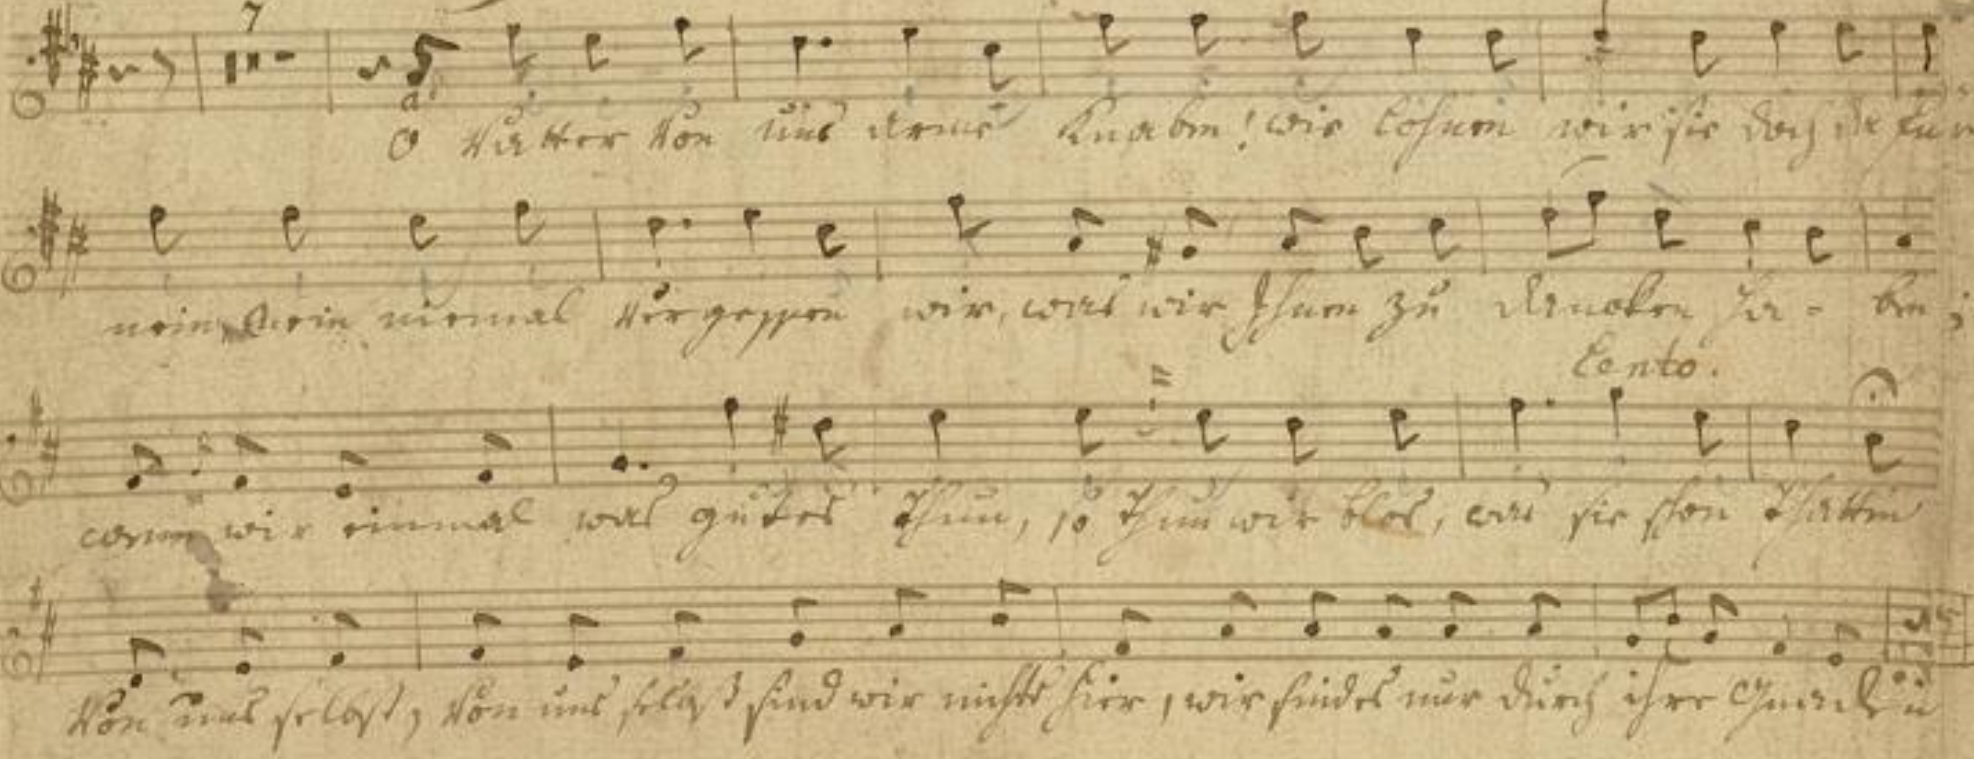 7
O Vatter Von uns arme Knaben! wie lohnen wir sie doch dafür
nein, nein niemal Vergessen wir, was wir Ihnen zu dancken ha- ben;
Lento.
wenn wir einmal was gutes thun, so thun wir blos, was sie schon thatten
Von uns selbst, Von uns selbst sind wir nichts hier, wir sindes nur durch ihre Gnad